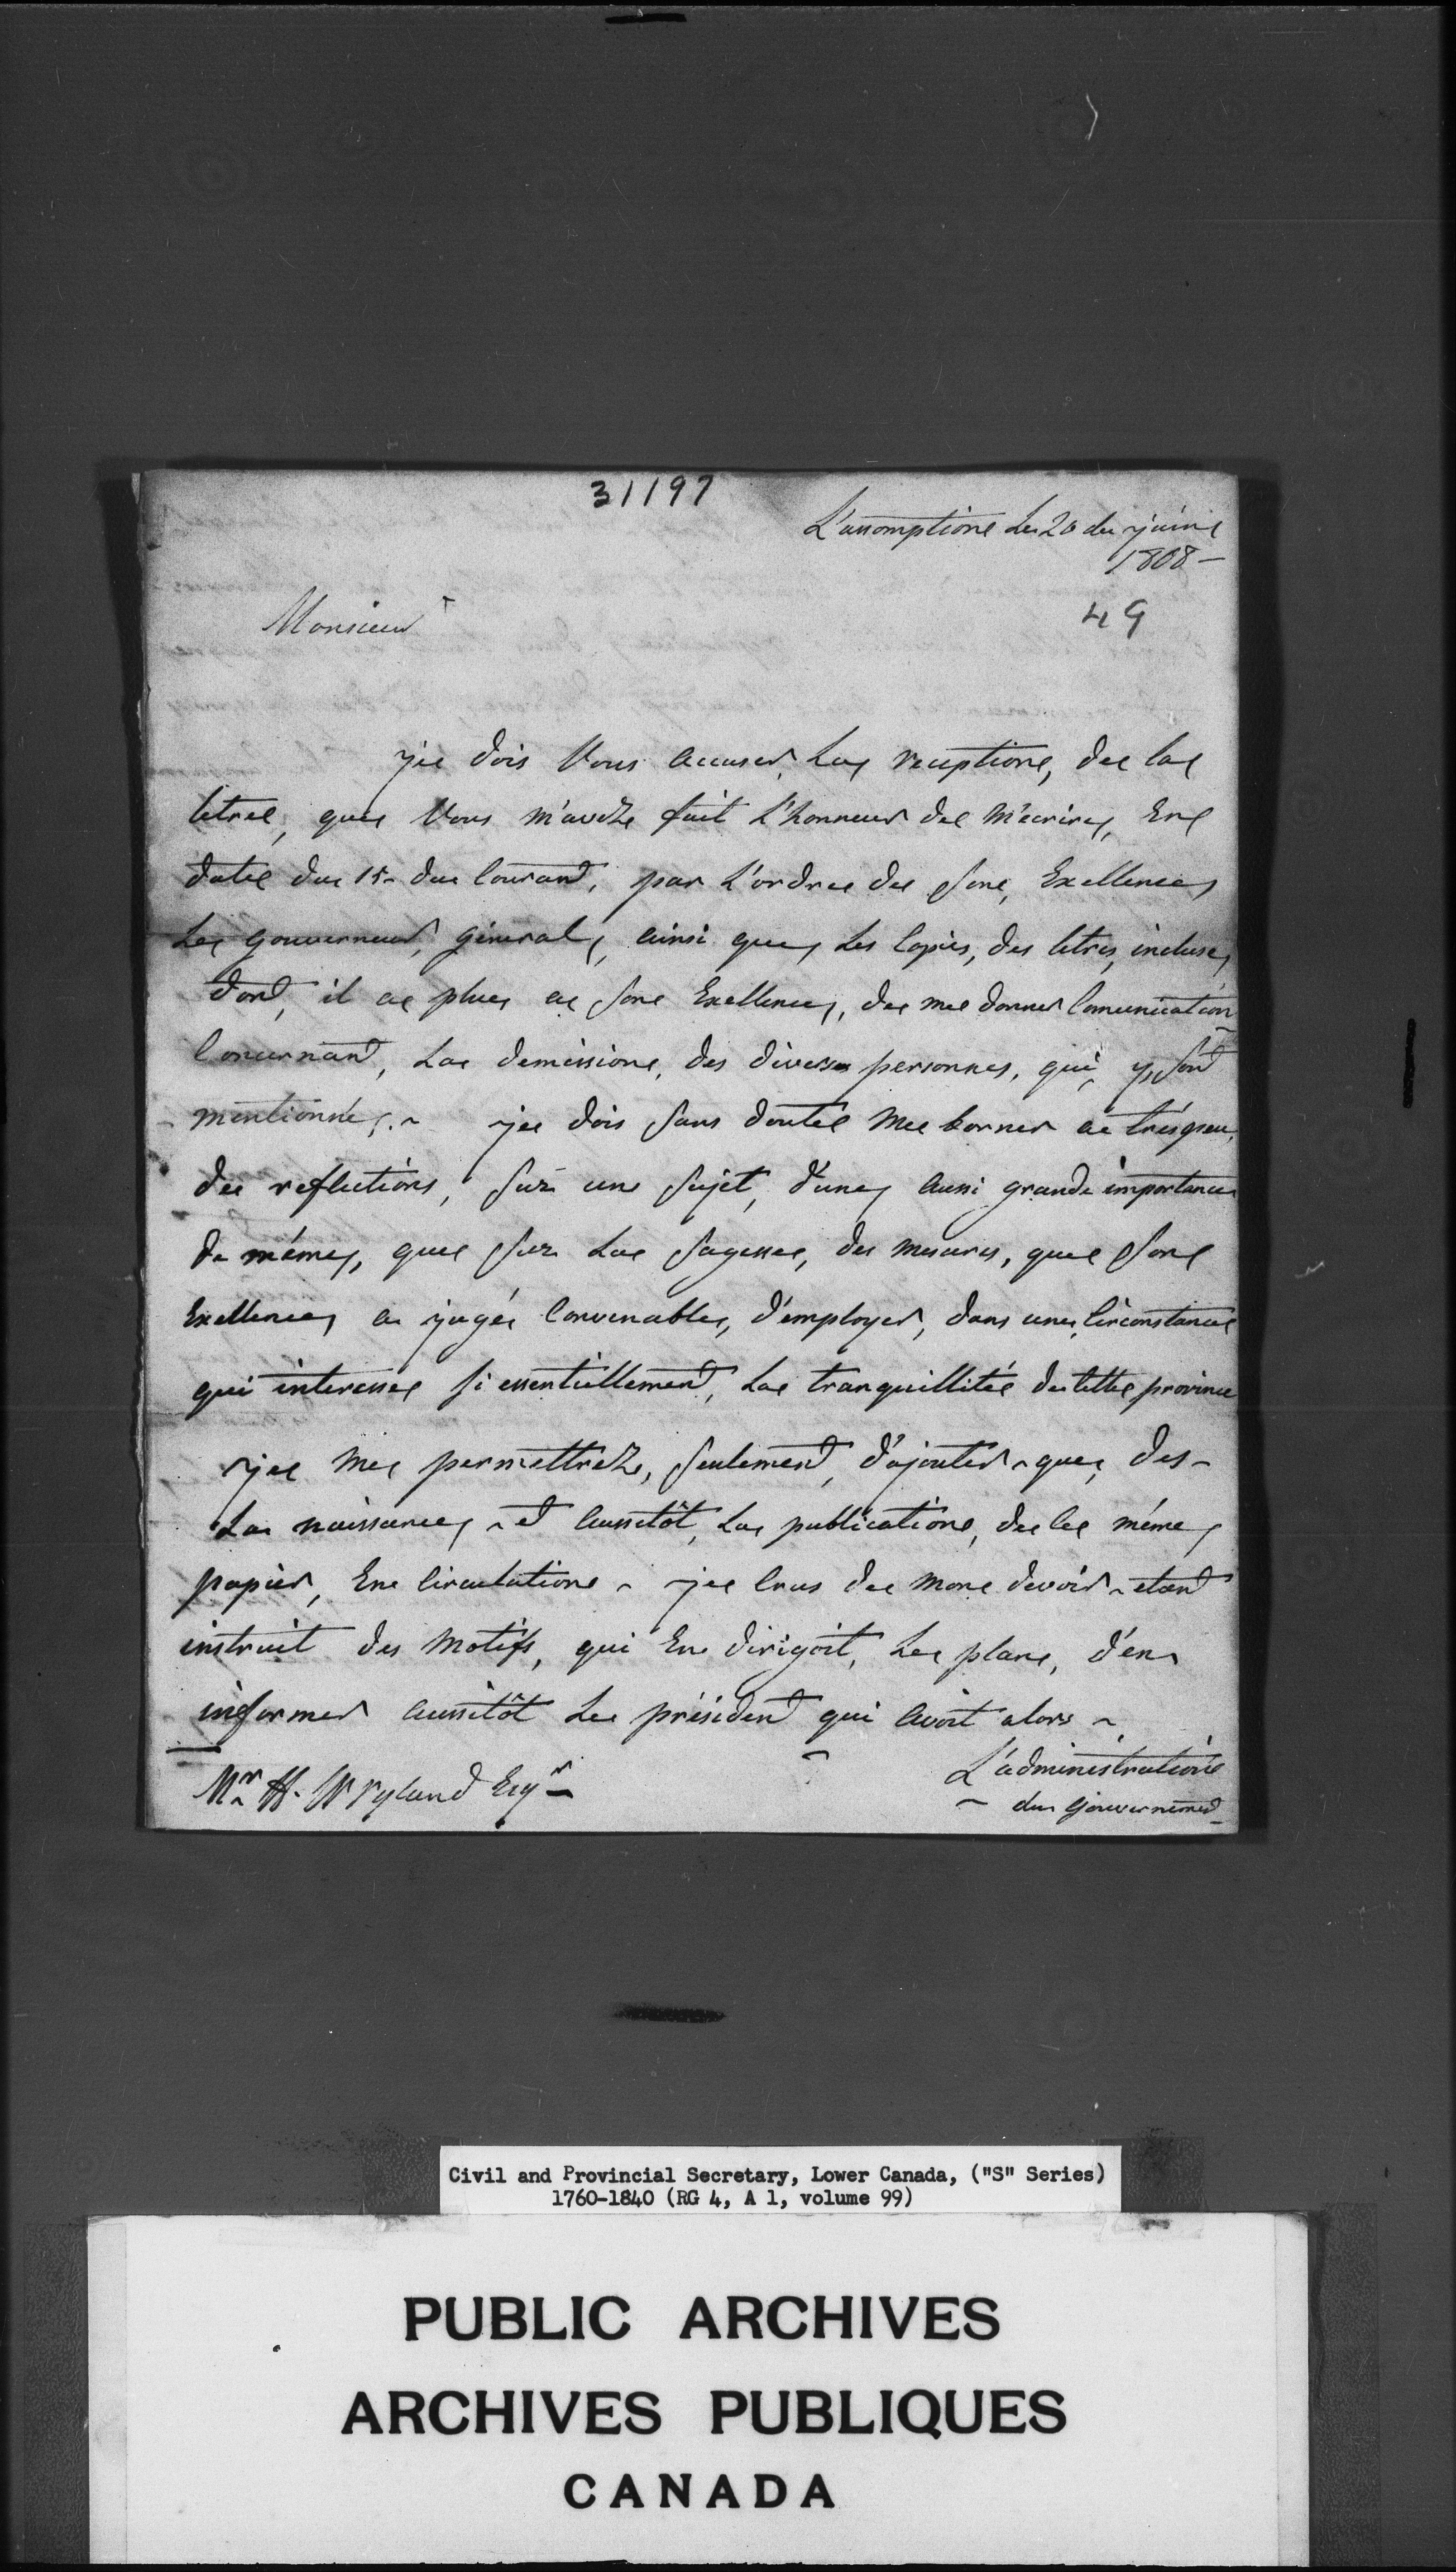 31197
L'assomptione Le 20 de juine
1808 -
49
Monsieur
je dois Vous accuser La receptione, de la
letree, que Vous m'avéz fait L'honneur de m'ecrire, En
date du 15- du Courant, par L'ordre de Son, Exellence
Le gouverneur, géneral, ainsi que, Les Copies, des letres, incluse,
dont, il a plue a Son Exellence, de me donner Comunication
Concernant, La demissione, des diverses personnes, qui, y, Sont
mentionnée, ~ je dois Sans doute me borner a trés peu,
de reflections, Sur une Sujet, d'une, aussi grande importance
de méme, que Sur La Sagesse, des mesures, que Son
Exellence, a jugée Convenable, d'employer, dans une, Circonstance
qui interesse Si essentiellement, La tranquillitée de Cette province
je me permettréz, Seulement, d'ajouter ~ que, des -
La naissance, ~ et aussitôt, La publicatione, de Ce méme,
papier, En Circulatione ~ je Crus de mon devoir ~ etant
instruit des Motifs, qui En dirigoit, Le plane, d'en
informer aussitôt Le président qui avoit alors ~
L'administratione
~ du gouvernement
Mr. H. W Ryland Esqr -
Civil and Provincial Secretary, Lower Canada, ("S" Series)
1760-1840 (RG 4, A 1, volume 99)
PUBLIC ARCHIVES
ARCHIVES PUBLIQUES
CANADA